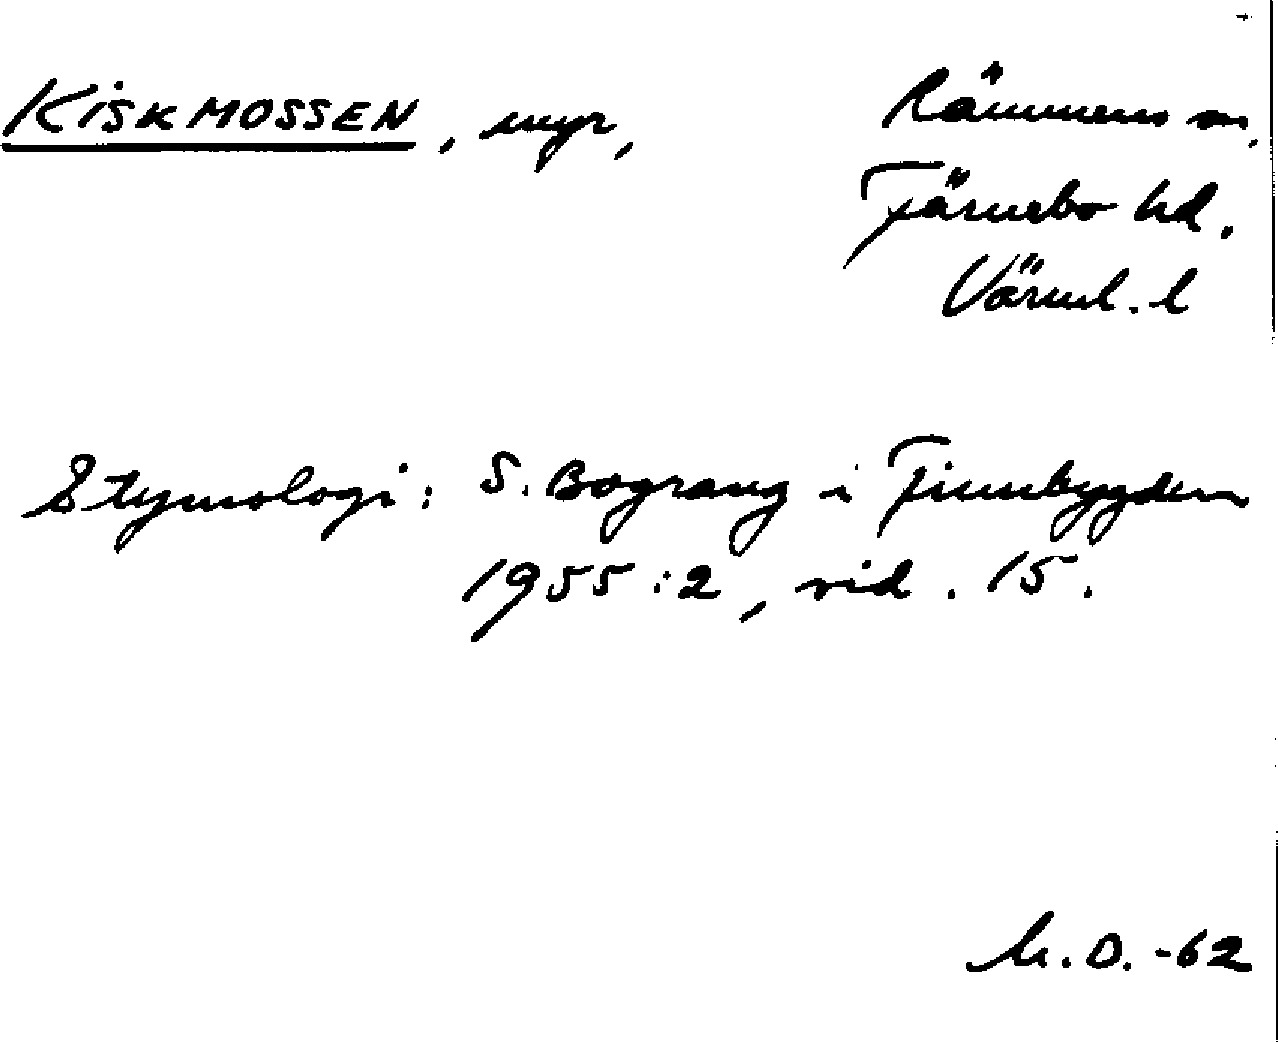 KISKMOSSEN, myr,
Rämmens sn,
Färnebo hd.
Värml. l
Etymologi: S. Bograng i Finnbygden
1955:2, sid. 15.
M.O. -62